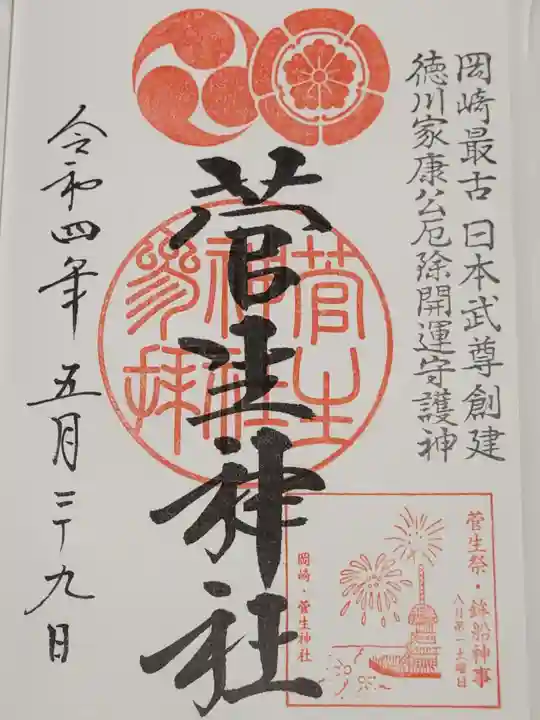 岡崎最古 日本武尊創建
徳川家康公厄除開運守護神
菅生神社
菅生
神社
参拝
令和四年 五月二十九日
菅生祭・鉾船神事
八月第一土曜日
岡崎・菅生神社